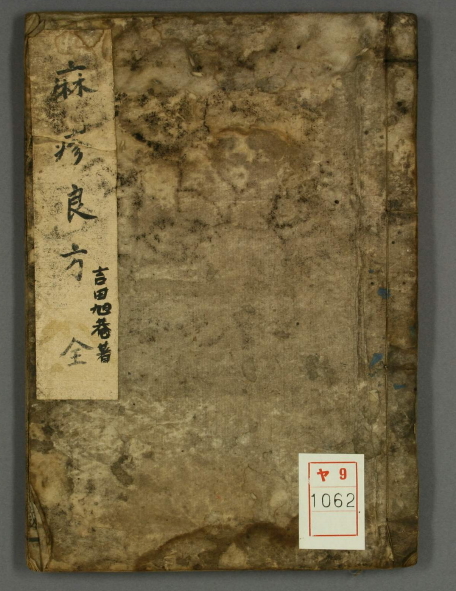 麻疹良方 全
吉田旭菴著
ヤ9
1062